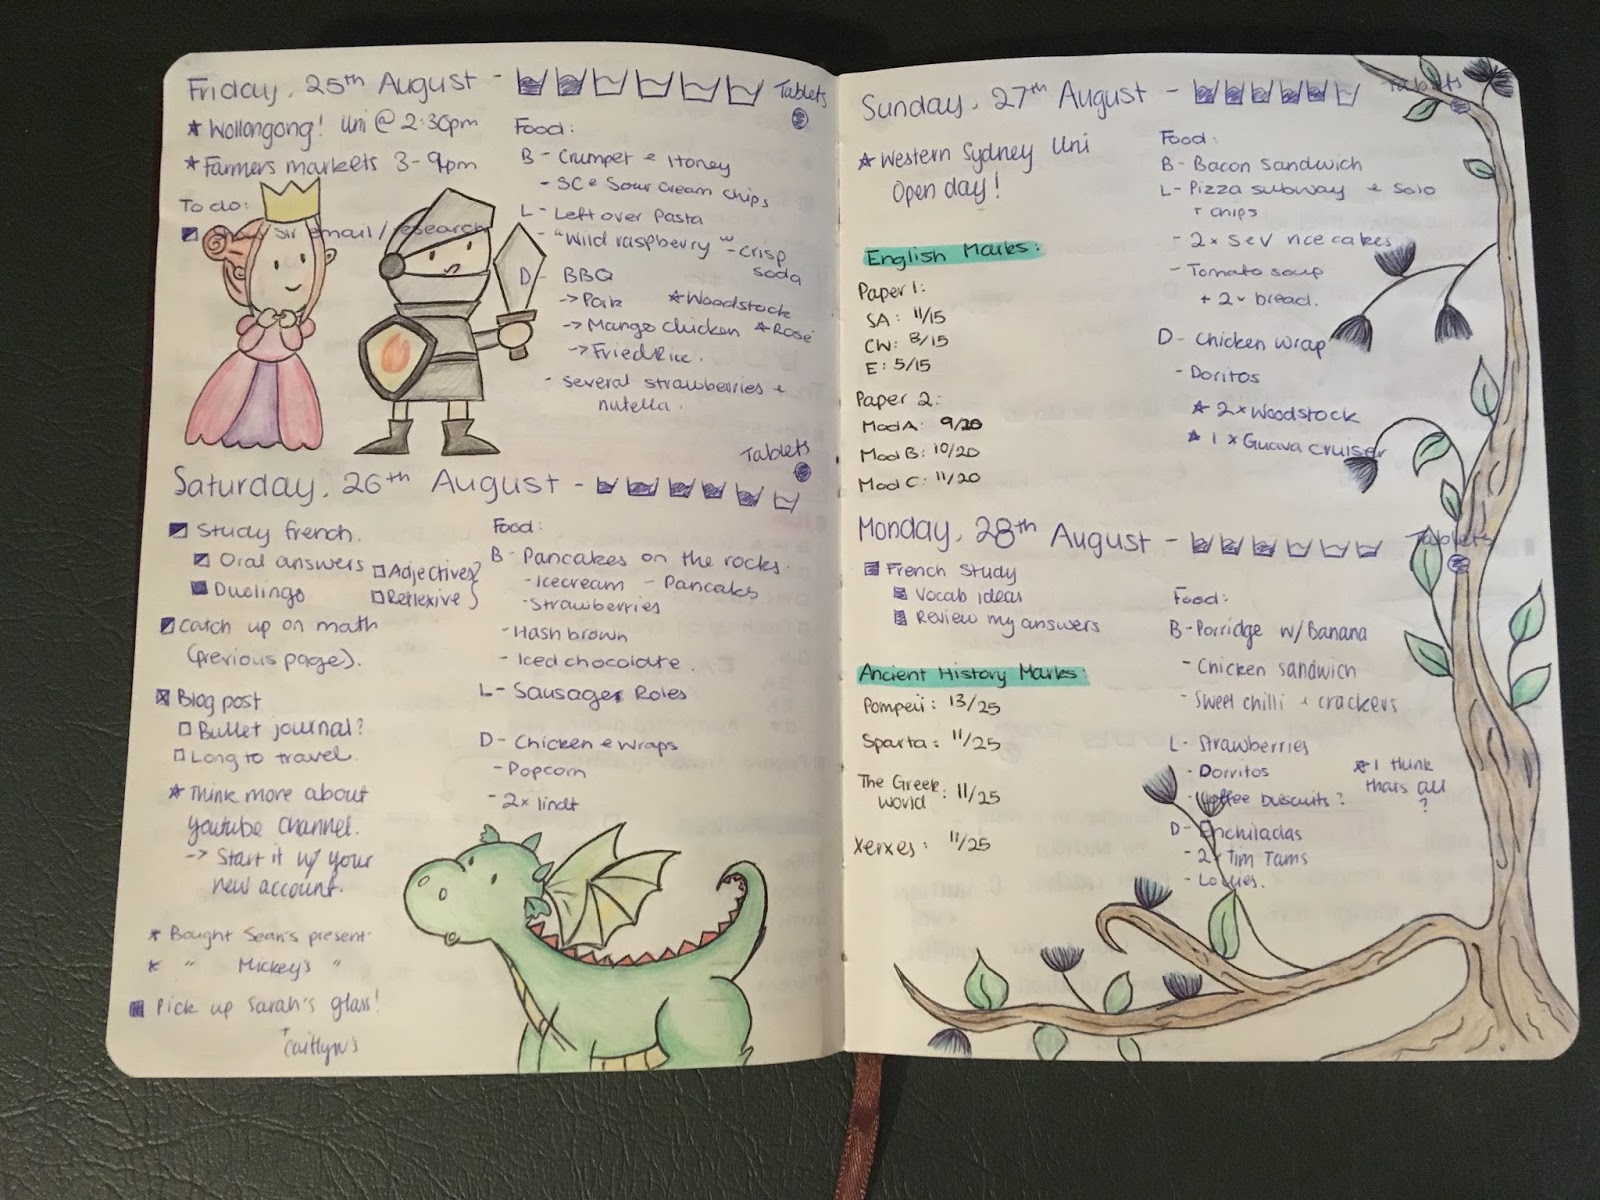 Friday, 25th August -
Tablets
★ Wollongong! Uni @ 2:30pm
★ Farmers markets 3-9pm
To do:
sir email / research
Food:
B - Crumpet & Honey
- SC & Sour Cream Chips
L - Left over Pasta
- "Wild raspberry" - crisp
soda
D - BBQ
-> Pork ★ Woodstock
-> Mango Chicken ★ Rosé
-> Fried Rice.
- several strawberries &
nutella.
Tablets
Saturday, 26th August -
Study french.
Oral answers
Duolingo
Adjectives?
Reflexive
Catch up on math
(previous page).
Blog post
Bullet journal?
Long to travel.
★ Think more about
youtube channel.
-> Start it w/ your
new account.
★ Bought Sean's present
★ " Mickey's "
Pick up Sarah's glass!
↑ Caitlyn's
Food:
B - Pancakes on the rocks.
- Icecream - Pancakes
- Strawberries
- Hash brown
- Iced chocolate.
L - Sausage Roles
D - Chicken & wraps
- Popcorn
- 2x lindt
Sunday, 27th August -
Tablets
★ Western Sydney Uni
Open day!
English Marks:
Paper 1:
SA: 11/15
CW: 8/15
E: 5/15
Paper 2:
Mod A: 9/20
Mod B: 10/20
Mod C: 11/20
Food:
B - Bacon Sandwich
L - Pizza subway & Solo
+ chips
- 2x S&V rice cakes
- Tomato soup
+ 2x bread.
D - Chicken wrap
- Doritos
★ 2x Woodstock
★ 1x Guava cruiser
Monday, 28th August -
Tablets
French Study
Vocab ideas
Review my answers
Ancient History Marks:
Pompeii: 13/25
Sparta: 11/25
The Greek
World: 11/25
Xerxes: 11/25
Food:
B - Porridge w/ Banana
- Chicken sandwich
- Sweet chilli + crackers
L - Strawberries
- Dorritos
- Coffee buiscuits?
★ I think
thats all
?
D - Enchiladas
- 2x Tim Tams
- Lollies.